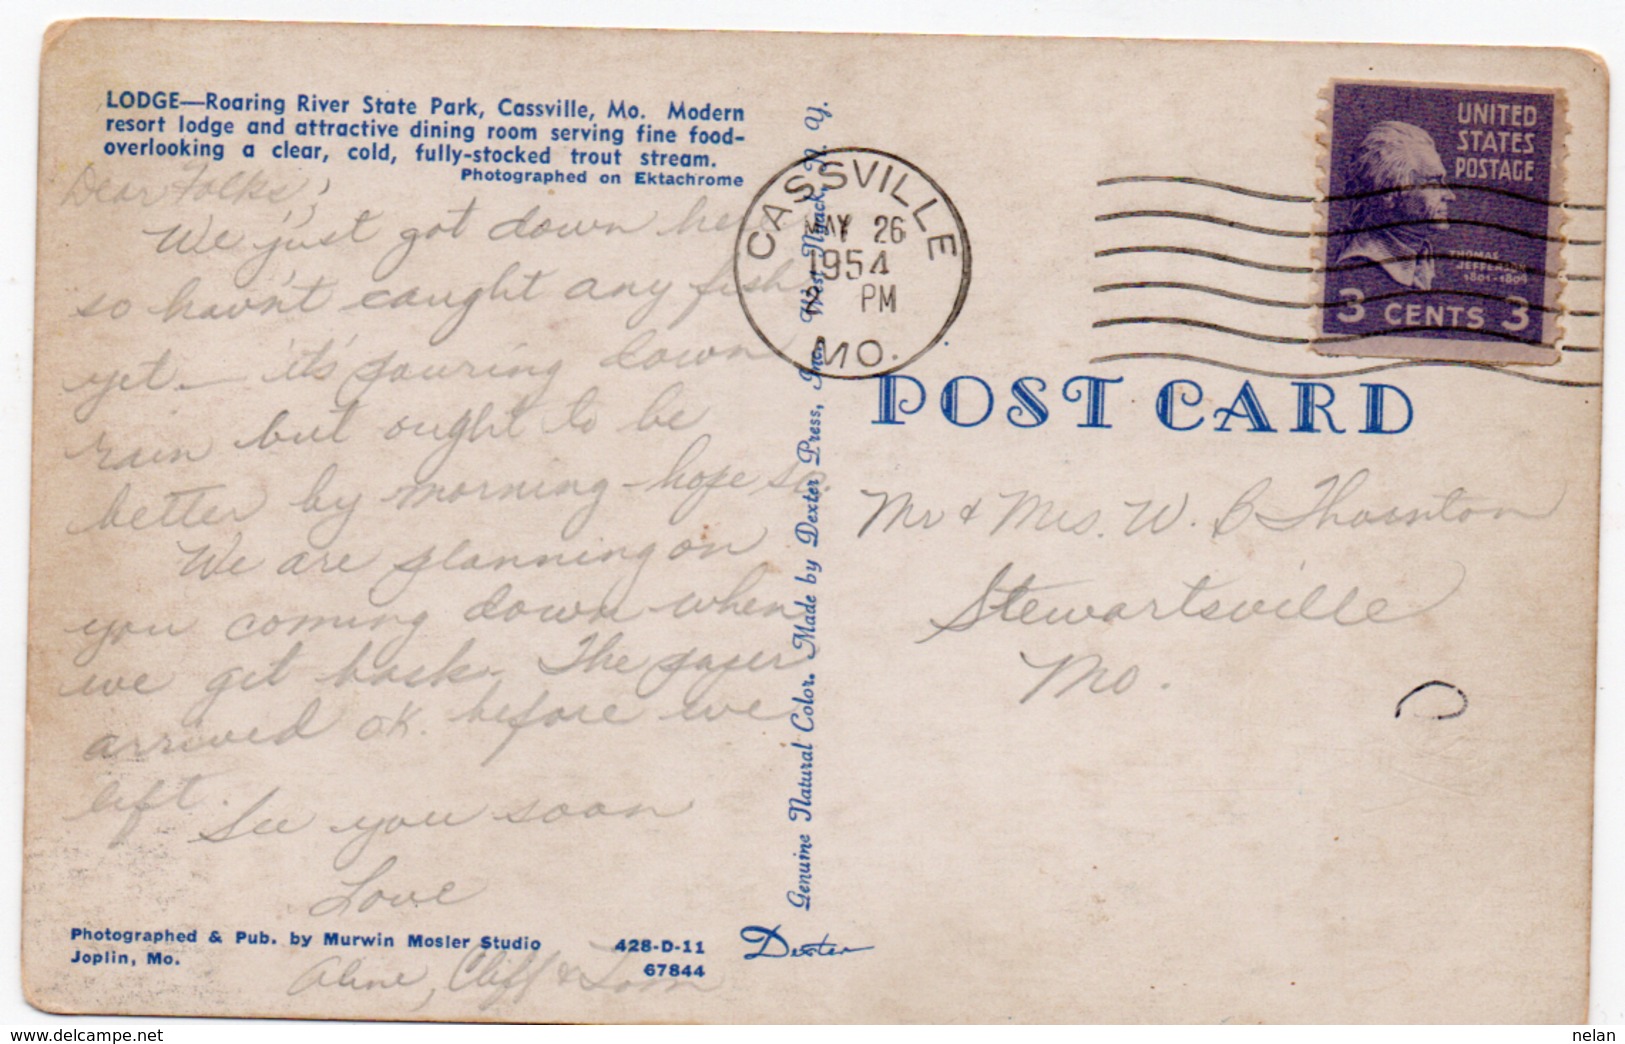 LODGE—Roaring River State Park, Cassville, Mo. Modern
resort lodge and attractive dining room serving fine food-
overlooking a clear, cold, fully-stocked trout stream.
Photographed on Ektachrome
Dear Folks,
We just got down here
so havn't caught any fish
yet — it's pouring down
rain but ought to be
better by morning - hope so.
We are planning on
you coming down when
we get back. The paper
arrived ok. before we
left.
See you soon
Love
Aline, Cliff & Tom
Photographed & Pub. by Murwin Mosler Studio
Joplin, Mo.
428-D-11
67844
Dexter
Genuine Natural Color. Made by Dexter Press, Inc. West Nyack, N. Y.
CASSVILLE
MAY 26
1954
PM
MO.
UNITED
STATES
POSTAGE
THOMAS
JEFFERSON
1801-1809
3 CENTS 3
POST CARD
Mr & Mrs. W. B Thornton
Stewartsville
Mo.
delcampe.net
nelan